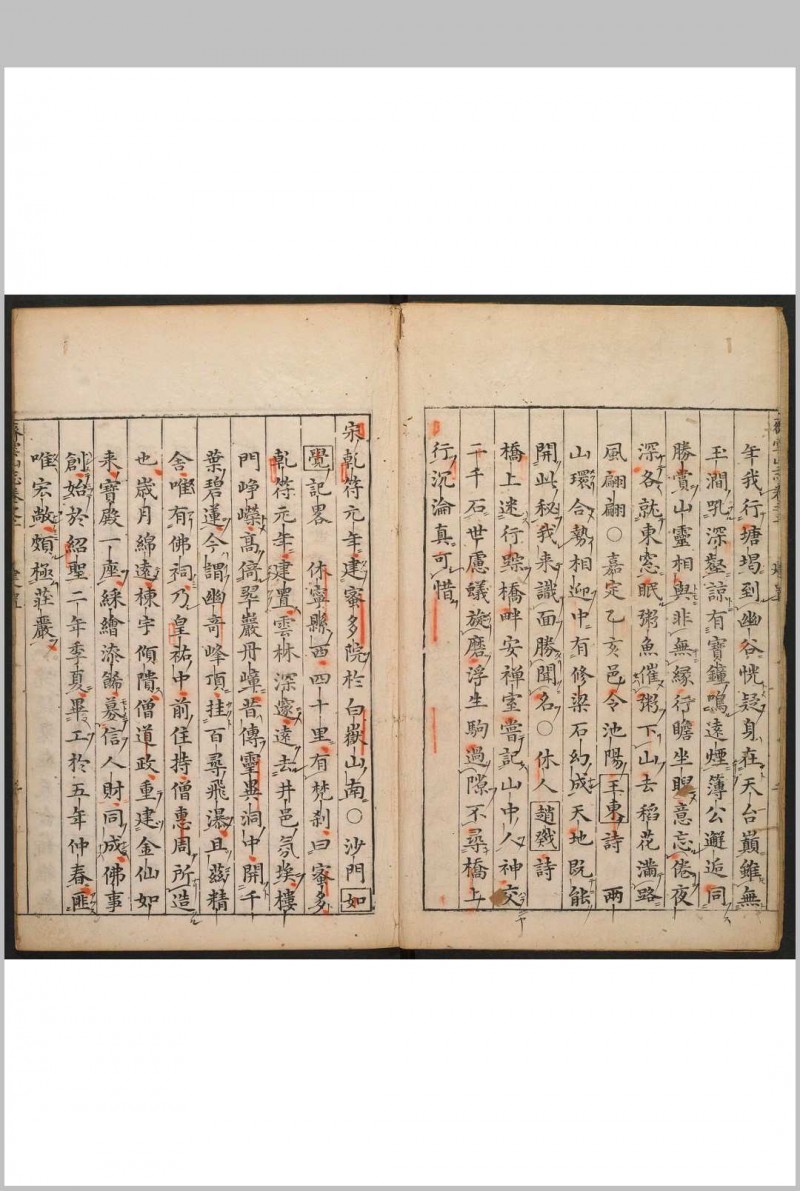 年我行塘堨到幽谷恍疑身在天台巔雖無
玉澗乳深鑿諒有寶鐘鳴遠煙簿公邂逅同
勝賞山靈相與非無緣行瞻坐睨意忘倦夜
深各就東窓眠粥魚催粥下山去稻花滿路
風翩翩○嘉定乙亥邑令池陽王東詩　兩
山環合勢相迎中有修梁石幻成天地既能
開此秘我来識面勝聞名○休人趙戣詩
橋上迷行㸃橋畔安禪室嘗記山中人神交
二千石世慮蟻旋磨浮生駒過隙不尋橋上
行沉淪真可惜
宋乾符元年建蜜多院於白嶽山南○沙門如
覺記畧　休寧縣西四十里有梵刹曰蜜多
乾符元年建置雲林深邃遠去井邑氛埃樓
門崢嶸高倚翠巖丹嶂昔傳靈異洞中開千
葉碧蓮今謂幽奇峰頂挂百尋飛瀑且茲精
舍唯有佛祠乃皇祐中前住持僧惠周所造
也歲月綿遠棟宇傾隤僧道政重建金仙如
来寶殿一座綵繪添餙募信人財同成佛事
創始於紹聖二年季夏畢工於五年仲春匪
唯宏敞頗極莊嚴